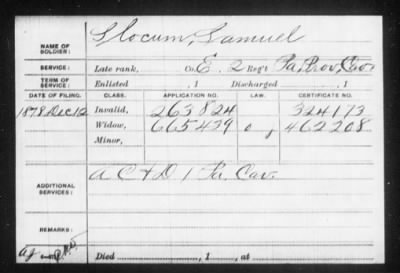 NAME OF SOLDIER: Slocum, Samuel
SERVICE: Late rank, Co. E, 2 Reg't Pa. Prov. Cav.
TERM OF SERVICE: Enlisted , 1 Discharged , 1
DATE OF FILING. CLASS. APPLICATION NO. LAW. CERTIFICATE NO.
1878 Dec 12 Invalid, 263824 324173
Widow, 665439 462208
Minor,
ADDITIONAL SERVICES: A C & D 1 Pa. Cav.
REMARKS:
Died , 1 , at